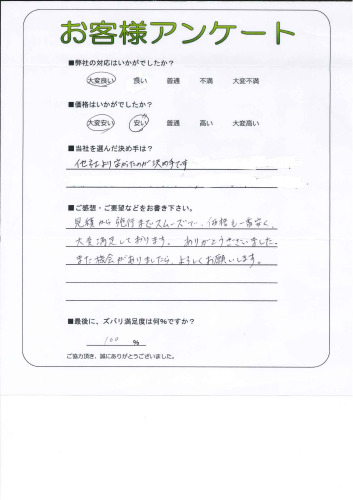 お客様アンケート
■弊社の対応はいかがでしたか?
大変良い 良い 普通 不満 大変不満
■価格はいかがでしたか?
大変安い 安い 普通 高い 大変高い
■当社を選んだ決め手は?
他社より安かったのが決め手です
■ご感想・ご要望などをお書き下さい。
見積から施行までスムーズで、価格も一番安く、
大変満足しております。 ありがとうございました。
また機会がありましたら、よろしくお願いします。
■最後に、ズバリ満足度は何%ですか?
100 %
ご協力頂き、誠にありがとうございました。